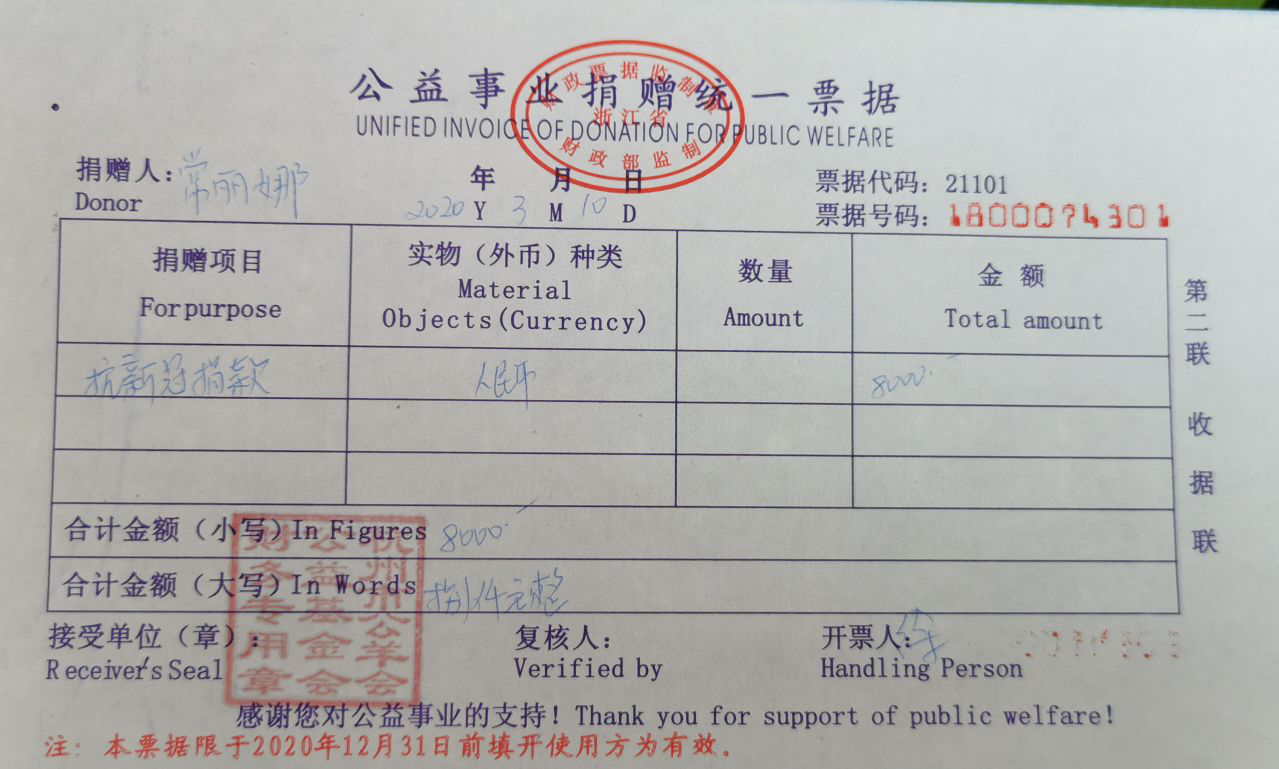 公益事业捐赠统一票据
UNIFIED INVOICE OF DONATION FOR PUBLIC WELFARE
财政票据监制章
浙江省
财政部监制
捐赠人：常丽娜 年 月 日 票据代码：21101
Donor 2020 Y 3 M 10 D 票据号码：1800074301
捐赠项目 实物（外币）种类 数量 金 额
For purpose Material Objects(Currency) Amount Total amount
抗新冠捐款 人民币 8000.-
合计金额（小写）In Figures 8000.-
合计金额（大写）In Words 捌仟元整
接受单位（章）： 复核人： 开票人：
Receiver's Seal Verified by Handling Person
杭州公羊会公益基金会财务专用章
感谢您对公益事业的支持！Thank you for support of public welfare!
注：本票据限于2020年12月31日前填开使用方为有效。
第二联 收据联